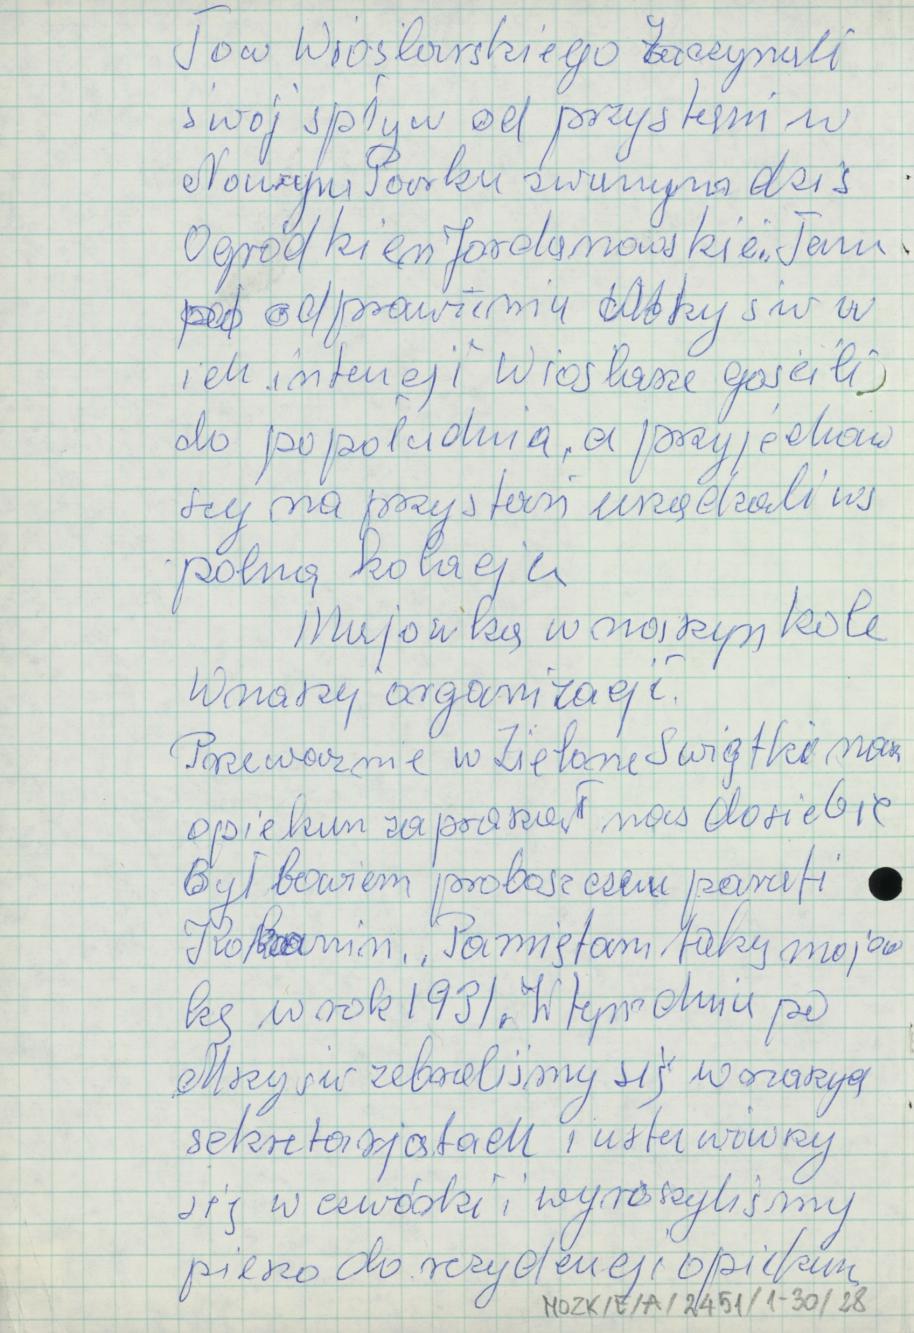 Tow Wioślarskiego Zaczynali
swój spływ od przystani w
Nowym Parku zwanym dziś
Ogródkiem Jordanowskie. Tam
po odprawieniu Mszy św w
ich intencji Wioślarze gościli
do popołudnia, a przyjechaw
szy na przystań urządzali ws
pólną kolację
Majówka w naszym kole
W naszej organizacji.
Przeważnie w Zielone Świątki nasz
opiekun zapraszał nas do siebie
był bowiem proboszczem parafi
Pamiętam taką majów
kę w rok 1931. W tym dniu po
Mszy św zebraliśmy się w naszych
sekretarjatach i ustawiwszy
się w czwórki i wyruszyliśmy
pieszo do rezydencji opiekun
MOZK/E/A/2451/1-30/28